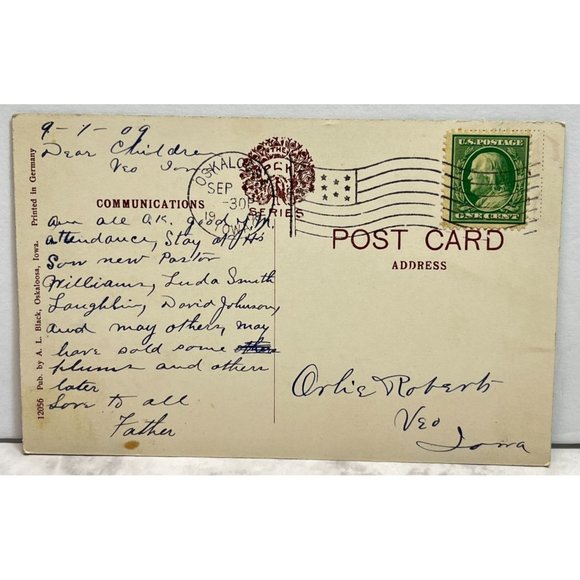 9-7-09
Dear Childre
Veo Iow
COMMUNICATIONS
am all O.K. good
attendance, Stay at
Saw new Pastor
Williams, Luda Smith
Laughlin, David Johnson,
and may others, may
have sold some
plums and others
later
Love to all
Father
12056 Pub. by A. L. Black, Oskaloosa, Iowa. Printed in Germany
OSKALOO
SEP
-30P
19
IOWA
THE
SERIES
U.S. POSTAGE
ONE CENT
POST CARD
ADDRESS
Orlie Roberts
Veo
Iowa